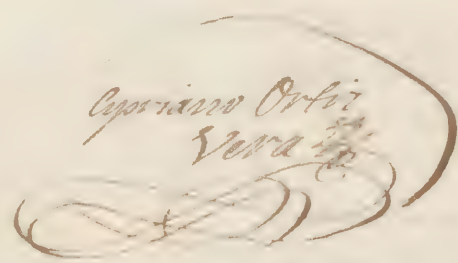 Cypriano Ortiz
Vera